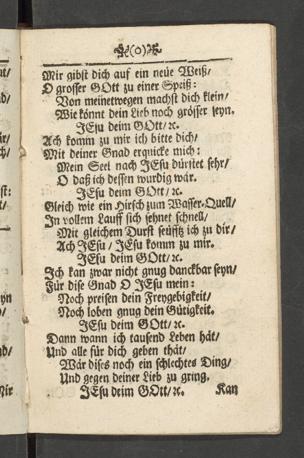 (o)
Mir gibst dich auf ein neue Weiß/
O grosser GOtt zu einer Speiß:
Von meinetwegen machst dich klein/
Wie könnt dein Lieb noch grösser seyn.
JEsu deim GOtt/ ꝛc.
Ach komm zu mir ich bitte dich/
Mit deiner Gnad erquicke mich:
Mein Seel nach JEsu dürstet sehr/
O daß ich dessen wurdig wär.
JEsu deim GOtt/ ꝛc.
Gleich wie ein Hirsch zum Wasser-Quell/
In vollem Lauff sich sehnet schnell/
Mit gleichem Durst seufftz ich zu dir/
Ach JEsu / JEsu komm zu mir.
JEsu deim GOtt/ ꝛc.
Ich kan zwar nicht gnug danckbar seyn/
Für dise Gnad O JEsu mein:
Noch preisen dein Freygebigkeit/
Noch loben gnug dein Gütigkeit.
JEsu deim GOtt/ ꝛc.
Dann wann ich tausend Leben hät/
Und alle für dich geben thät/
Wär dises noch ein schlechtes Ding/
Und gegen deiner Lieb zu gring.
JEsu deim GOtt/ ꝛc. Kan